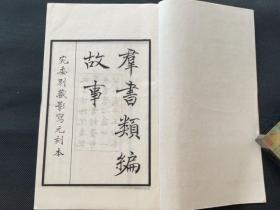 羣書類編
故事
宛委別藏影寫元刻本